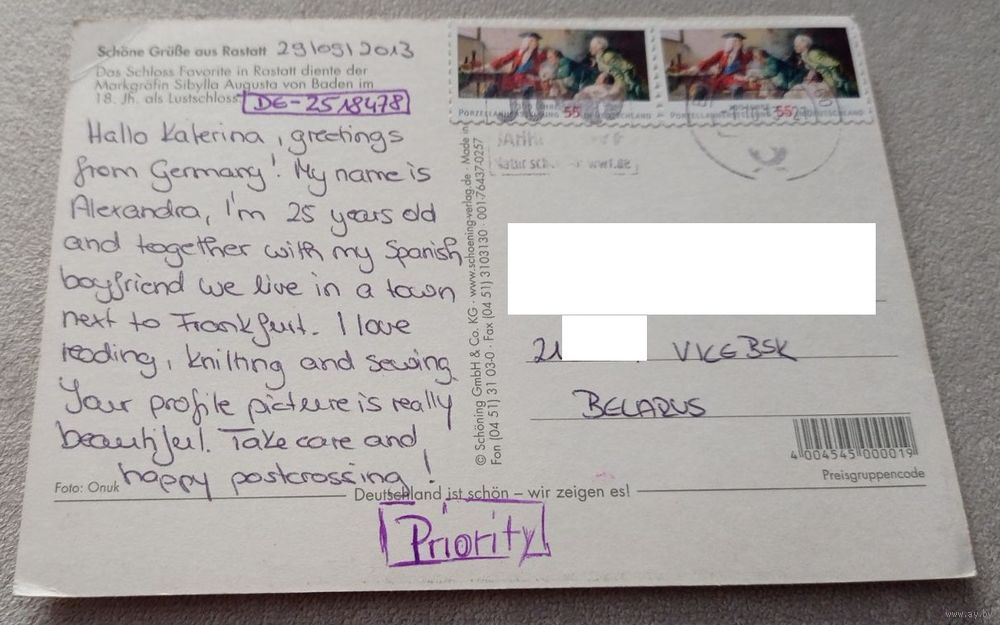 Schöne Grüße aus Rastatt 29/09/2013
Das Schloss Favorite in Rastatt diente der
Markgräfin Sibylla Augusta von Baden im
18. Jh. als Lustschloss
DE-2518478
Hallo Katerina, greetings
from Germany! My name is
Alexandra, I'm 25 years old
and together with my Spanish
boyfriend we live in a town
next to Frankfurt. I love
reading, knitting and sewing
Your profile picture is really
beautiful. Take care and
happy postcrossing!
Foto: Onuk
Deutschland ist schön – wir zeigen es!
Priority
© Schöning GmbH & Co. KG · www.schoeningverlag.de · Made in
Fon (04 51) 31 03-0 · Fax (04 51) 3103130 · 001-76437-0257
55
PORZELLAN DEUTSCHLAND
55
PORZELLAN DEUTSCHLAND
wwf.de
21
VICEBSK
BELARUS
4 004545 000019
Preisgruppencode
www.ay.by